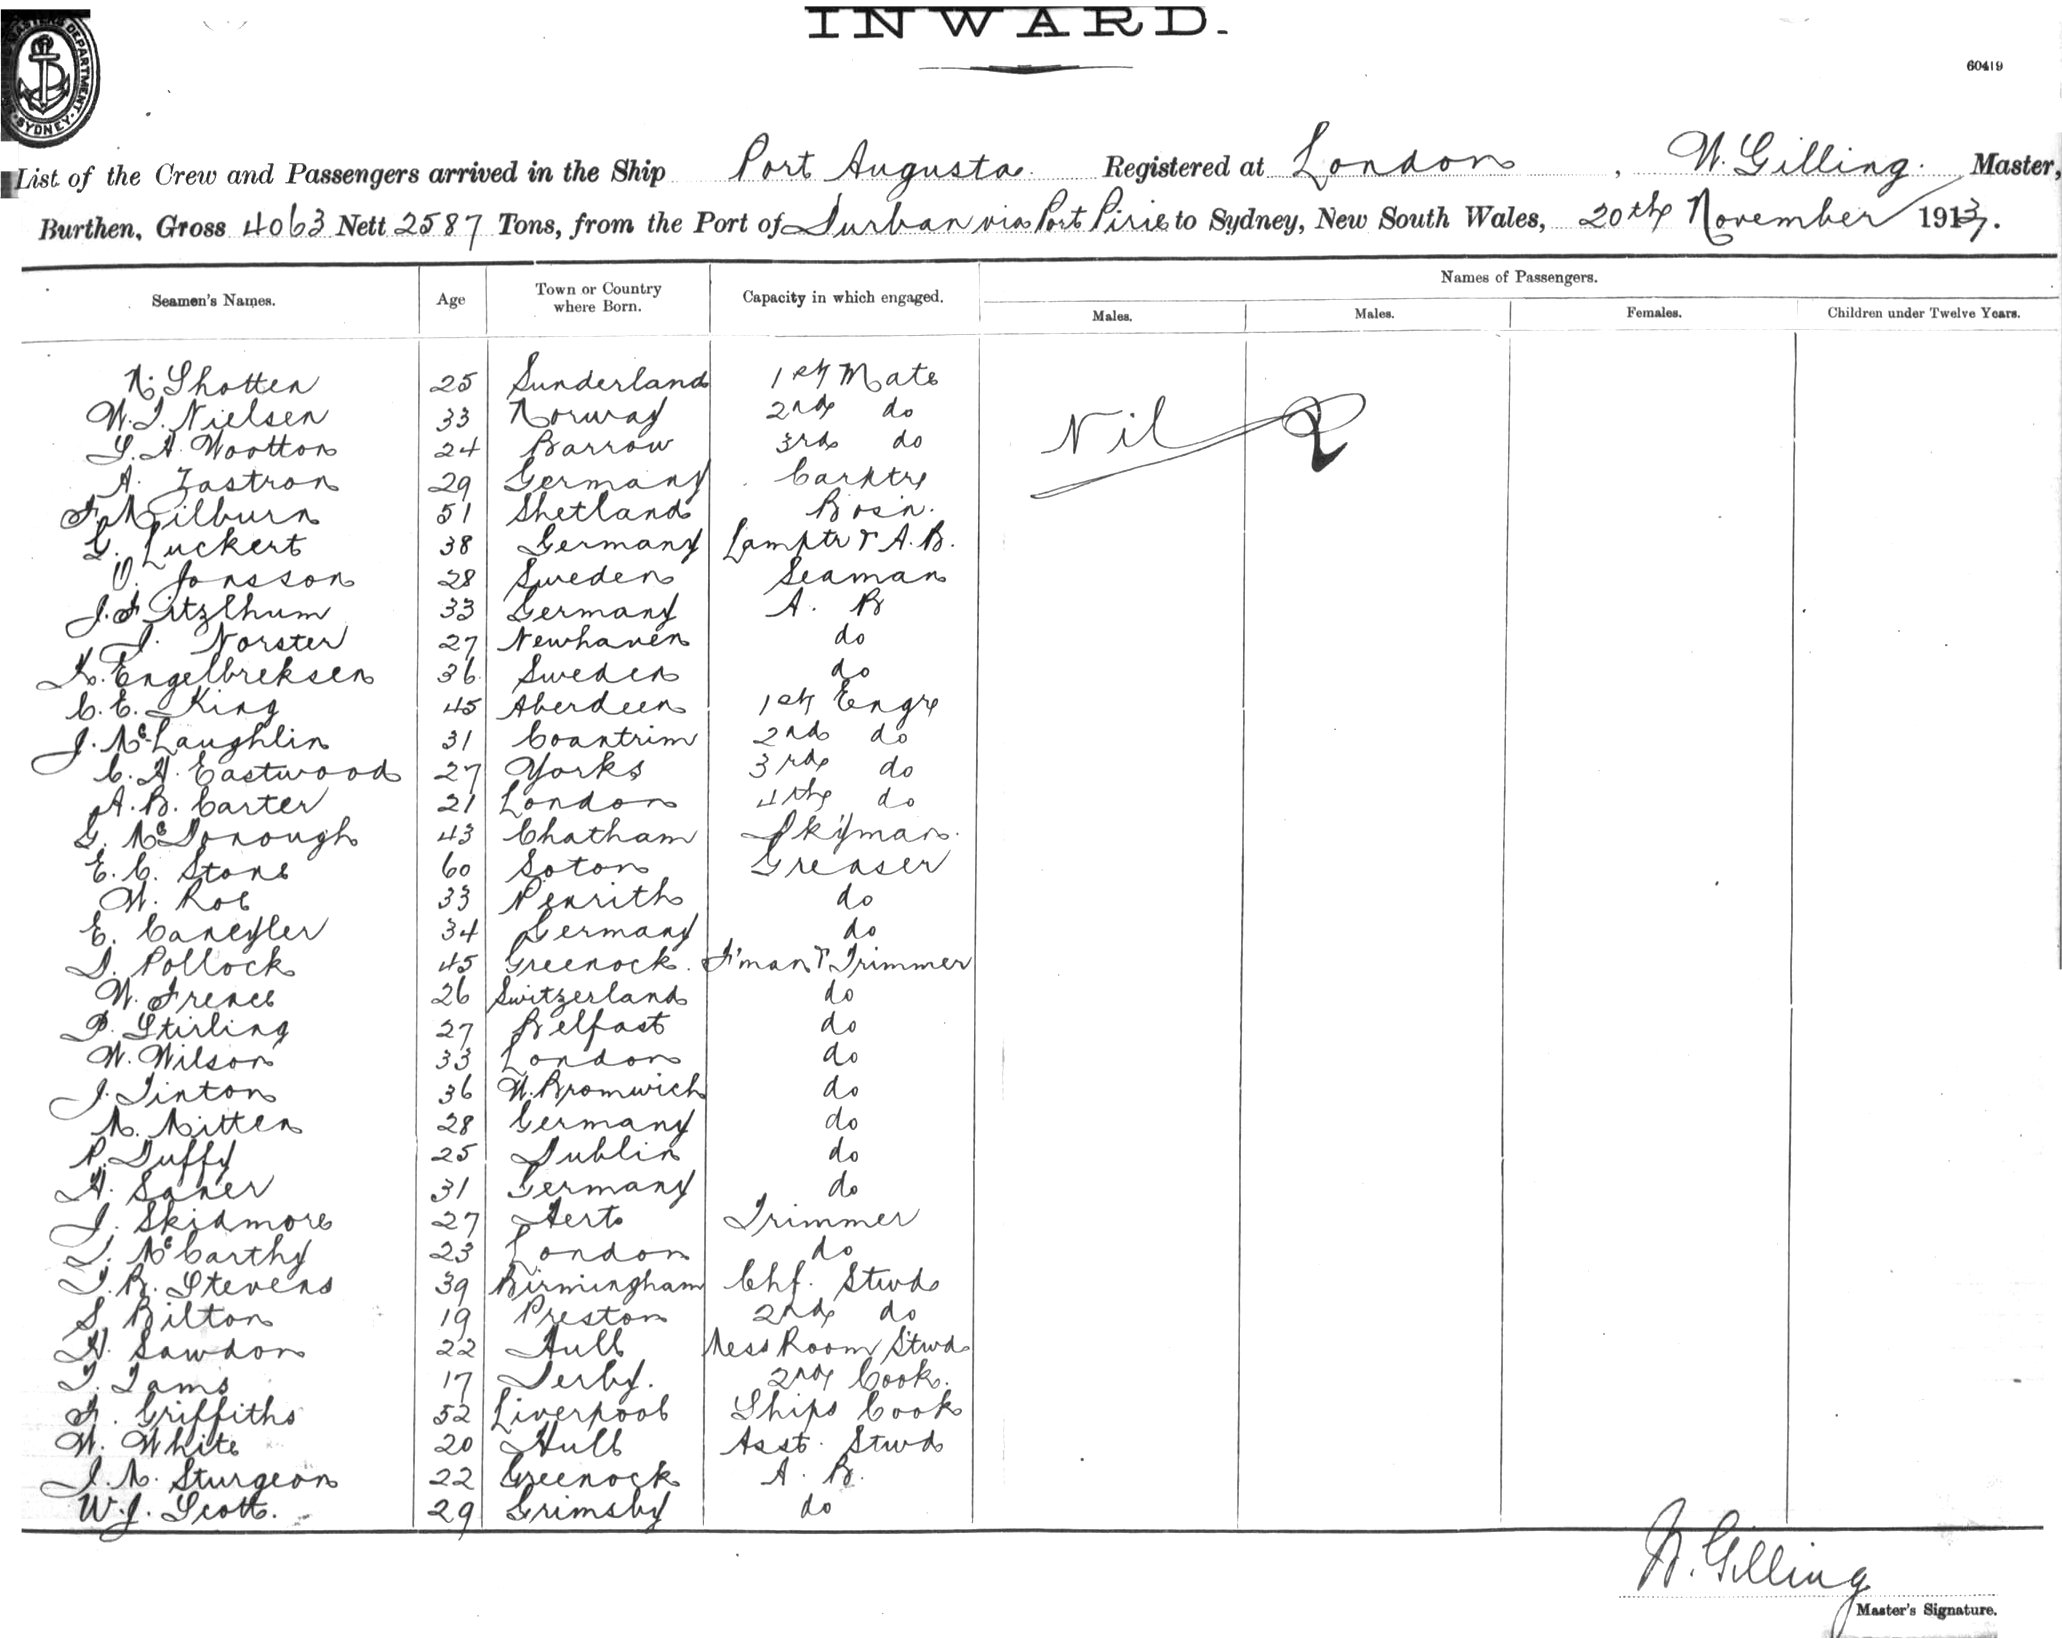 INWARD.
DEPARTMENT
SYDNEY
60419
List of the Crew and Passengers arrived in the Ship Port Augusta. Registered at London, W. Gilling. Master,
Burthen, Gross 4063 Nett 2587 Tons, from the Port of Durban via Port Pirie to Sydney, New South Wales, 20th November 1913.
Names of Passengers.
Seamen's Names. Age Town or Country where Born. Capacity in which engaged. Males. Males. Females. Children under Twelve Years.
N. Shotten 25 Sunderland 1st Mate
W. J. Nielsen 33 Norway 2nd do
Nil
S. H. Wootton 24 Barrow 3rd do
A. Zastron 29 Germany Carptr
F. Milburn 51 Shetland Bosn.
G. Luckert 38 Germany Lamptr & A.B.
O. Jonsson 28 Sweden Seaman
J. Fitzlhum 33 Germany A. B
J. Norster 27 Newhaven do
K. Engelbreksen 36 Sweden do
C. E. King 45 Aberdeen 1st Engr
J. McLaughlin 31 Coantrim 2nd do
C. H. Eastwood 27 Yorks 3rd do
A. B. Carter 21 London 4th do
G. McDonough 43 Chatham Dkyman.
E. C. Stone 60 Soton Greaser
W. Roe 33 Penrith do
E. 34 Germany do
D. Pollock 45 Greenock. F'man & Trimmer
W. 26 Switzerland do
P. Stirling 27 Belfast do
W. Wilson 33 London do
J. Tinton 36 W. Bromwich do
M. Mitten 28 Germany do
P. Duffy 25 Dublin do
H. Saner 31 Germany do
J. Skidmore 27 Herts Trimmer
J. McCarthy 23 London do
J. R. Stevens 39 Birmingham Chf. Stwd
S. Bilton 19 Preston 2nd do
H. Sawdon 22 Hull Mess Room Stwd
T. Tams 17 Derby. 2nd Cook.
F. Griffiths 52 Liverpool Ships Cook
W. White 20 Hull Asst. Stwd
J. M. Sturgeon 22 Greenock A. B.
W. J. Scott. 29 Grimsby do
W. Gilling
Master's Signature.